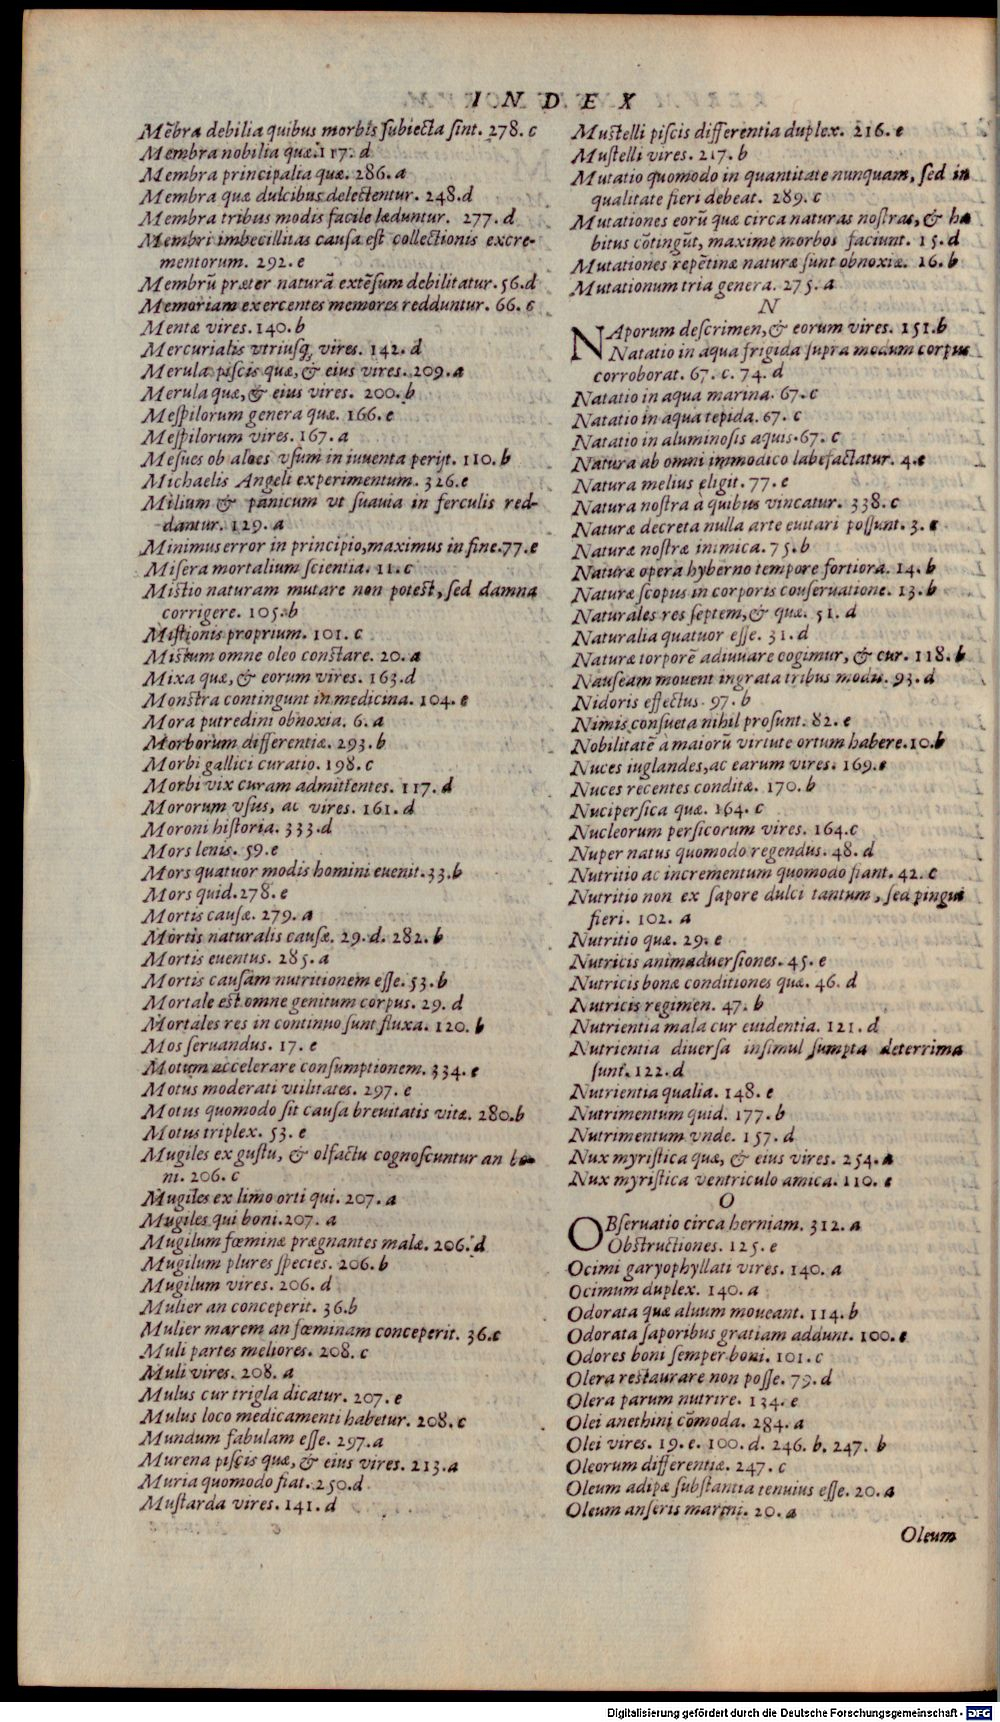 INDEX
Mẽbra debilia quibus morbis ſubiecta ſint. 278. c
Membra nobilia quæ. 117. d
Membra principalia quæ. 286. a
Membra quæ dulcibus delectentur. 248. d
Membra tribus modis facile læduntur. 277. d
Membri imbecillitas cauſa eſt collectionis excre-
mentorum. 292. e
Membrũ præter naturã extẽſum debilitatur. 56. d
Memoriam exercentes memores redduntur. 66. e
Mentæ vires. 140. b
Mercurialis vtriuſq; vires. 142. d
Merula piſcis quæ, & eius vires. 209. a
Merula quæ, & eius vires. 200. b
Meſpilorum genera quæ. 166. e
Meſpilorum vires. 167. a
Meſues ob aloes vſum in iuuenta perijt. 110. b
Michaelis Angeli experimentum. 326. e
Milium & panicum vt ſuauia in ferculis red-
dantur. 129. a
Minimus error in principio, maximus in fine. 77. e
Miſera mortalium ſcientia. 11. c
Miſtio naturam mutare non poteſt, ſed damna
corrigere. 105. b
Miſtionis proprium. 101. c
Miſtum omne oleo conſtare. 20. a
Mixa quæ, & eorum vires. 163. d
Monſtra contingunt in medicina. 104. e
Mora putredini obnoxia. 6. a
Morborum differentiæ. 293. b
Morbi gallici curatio. 198. c
Morbi vix curam admittentes. 117. d
Mororum vſus, ac vires. 161. d
Moroni hiſtoria. 333. d
Mors lenis. 59. e
Mors quatuor modis homini euenit. 33. b
Mors quid. 278. e
Mortis cauſæ. 279. a
Mortis naturalis cauſæ. 29. d. 282. b
Mortis euentus. 285. a
Mortis cauſam nutritionem eſſe. 53. b
Mortale eſt omne genitum corpus. 29. d
Mortales res in continuo ſunt fluxa. 120. b
Mos ſeruandus. 17. e
Motum accelerare conſumptionem. 334. e
Motus moderati vtilitates. 297. e
Motus quomodo ſit cauſa breuitatis vitæ. 280. b
Motus triplex. 53. e
Mugiles ex guſtu, & olfactu cognoſcuntur an bo-
ni. 206. c
Mugiles ex limo orti qui. 207. a
Mugiles qui boni. 207. a
Mugilum fœminæ prægnantes malæ. 206. d
Mugilum plures ſpecies. 206. b
Mugilum vires. 206. d
Mulier an conceperit. 36. b
Mulier marem an fœminam conceperit. 36. c
Muli partes meliores. 208. c
Muli vires. 208. a
Mulus cur trigla dicatur. 207. e
Mulus loco medicamenti habetur. 208. c
Mundum fabulam eſſe. 297. a
Murena piſcis quæ, & eius vires. 213. a
Muria quomodo fiat. 250. d
Muſtarda vires. 141. d
Muſtelli piſcis differentia duplex. 216. e
Muſtelli vires. 217. b
Mutatio quomodo in quantitate nunquam, ſed in
qualitate fieri debeat. 289. c
Mutationes eorũ quæ circa naturas noſtras, & ha
bitus cõtingũt, maxime morbos faciunt. 15. d
Mutationes repẽtinæ naturæ ſunt obnoxiæ. 16. b
Mutationum tria genera. 275. a
N
NAporum deſcrimen, & eorum vires. 151. b
Natatio in aqua frigida ſupra modum corpus
corroborat. 67. c. 74. d
Natatio in aqua marina. 67. c
Natatio in aqua tepida. 67. c
Natatio in aluminoſis aquis. 67. c
Natura ab omni immodico labefactatur. 4. e
Natura melius eligit. 77. e
Natura noſtra à quibus vincatur. 338. c
Naturæ decreta nulla arte euitari poſſunt. 3. e
Naturæ noſtræ inimica. 75. b
Naturæ opera hyberno tempore fortiora. 14. b
Naturæ ſcopus in corporis conſeruatione. 13. b
Naturales res ſeptem, & quæ. 51. d
Naturalia quatuor eſſe. 31. d
Naturæ torporẽ adiuuare cogimur, & cur. 118. b
Nauſeam mouent ingrata tribus modis. 93. d
Nidoris effectus. 97. b
Nimis conſueta nihil proſunt. 82. e
Nobilitatẽ à maiorũ virtute ortum habere. 10. b
Nuces iuglandes, ac earum vires. 169. e
Nuces recentes conditæ. 170. b
Nuciperſica quæ. 164. c
Nucleorum perſicorum vires. 164. c
Nuper natus quomodo regendus. 48. d
Nutritio ac incrementum quomodo fiant. 42. c
Nutritio non ex ſapore dulci tantum, ſed pingui
fieri. 102. a
Nutritio quæ. 29. e
Nutricis animaduerſiones. 45. e
Nutricis bonæ conditiones quæ. 46. d
Nutricis regimen. 47. b
Nutrientia mala cur euidentia. 121. d
Nutrientia diuerſa inſimul ſumpta deterrima
ſunt. 122. d
Nutrientia qualia. 148. e
Nutrimentum quid. 177. b
Nutrimentum vnde. 157. d
Nux myriſtica quæ, & eius vires. 254. a
Nux myriſtica ventriculo amica. 110. e
O
OBſeruatio circa herniam. 312. a
Obſtructiones. 125. e
Ocimi garyophyllati vires. 140. a
Ocimum duplex. 140. a
Odorata quæ aluum moueant. 114. b
Odorata ſaporibus gratiam addunt. 100. e
Odores boni ſemper boni. 101. c
Olera reſtaurare non poſſe. 79. d
Olera parum nutrire. 134. e
Olei anethini cõmoda. 284. a
Olei vires. 19. e. 100. d. 246. b. 247. b
Oleorum differentiæ. 247. c
Oleum adipæ ſubſtantia tenuius eſſe. 20. a
Oleum anſeris marini. 20. a
Oleum
Digitalisierung gefördert durch die Deutsche Forschungsgemeinschaft - DFG